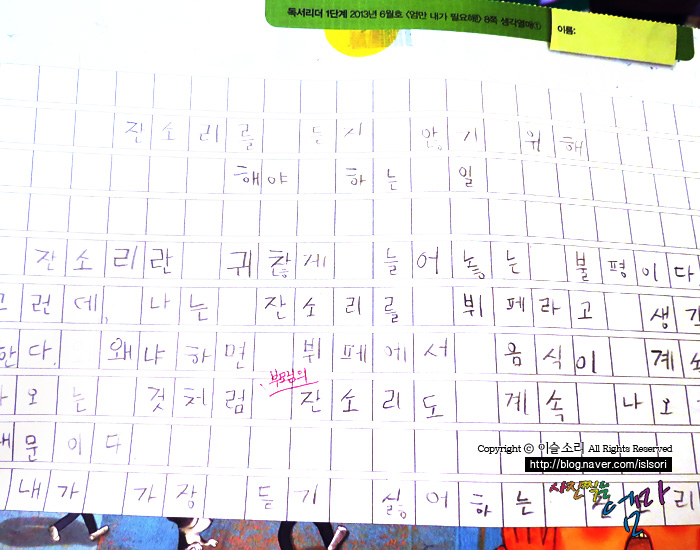 독서리더 1단계 2013년 6월호 <엄만 내가 필요해> 8쪽 생각열매①
이름:
잔소리를 듣지 않기 위해
해야 하는 일
잔소리란 귀찮게 늘어놓는 불평이다.
그런데, 나는 잔소리를 뷔페라고 생각
한다. 왜냐하면 뷔페에서 음식이 계속
부모님의
나오는 것처럼 잔소리도 계속 나오
때문이다
Copyright ⓒ 이슬소리 All Rights Reserved
http://blog.naver.com/islsori
내가 가장 듣기 싫어하는 리
사진찍는 엄마